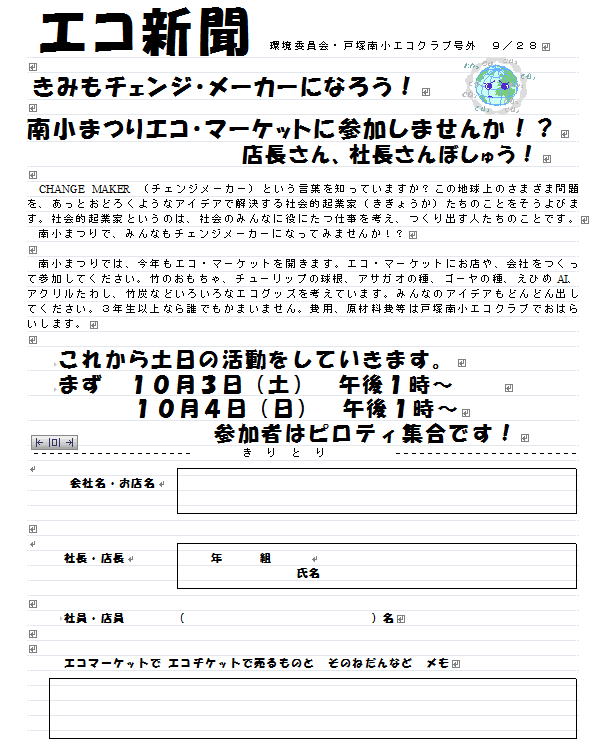 エコ新聞 環境委員会・戸塚南小エコクラブ号外 9/28
きみもチェンジ・メーカーになろう！
南小まつりエコ・マーケットに参加しませんか！？
店長さん、社長さんぼしゅう！
CHANGE MAKER （チェンジメーカー）という言葉を知っていますか？この地球上のさまざま問題
を、あっとおどろくようなアイデアで解決する社会的起業家（ききぎょうか）たちのことをそうよびま
す。社会的起業家というのは、社会のみんなに役にたつ仕事を考え、つくり出す人たちのことです。
南小まつりで、みんなもチェンジメーカーになってみませんか！？
南小まつりでは、今年もエコ・マーケットを開きます。エコ・マーケットにお店や、会社をつくっ
て参加してください。竹のおもちゃ、チューリップの球根、アサガオの種、ゴーヤの種、えひめAI、
アクリルたわし、竹炭などいろいろなエコグッズを考えています。みんなのアイデアもどんどん出し
てください。３年生以上なら誰でもかまいません。費用、原材料費等は戸塚南小エコクラブでおはら
いします。
これから土日の活動をしていきます。
まず １０月３日（土） 午後１時～
１０月４日（日） 午後１時～
参加者はピロティ集合です！
きりとり
会社名・お店名
社長・店長 年 組
氏名
社員・店員 （ ）名
エコマーケットで エコチケットで売るものと そのねだんなど メモ